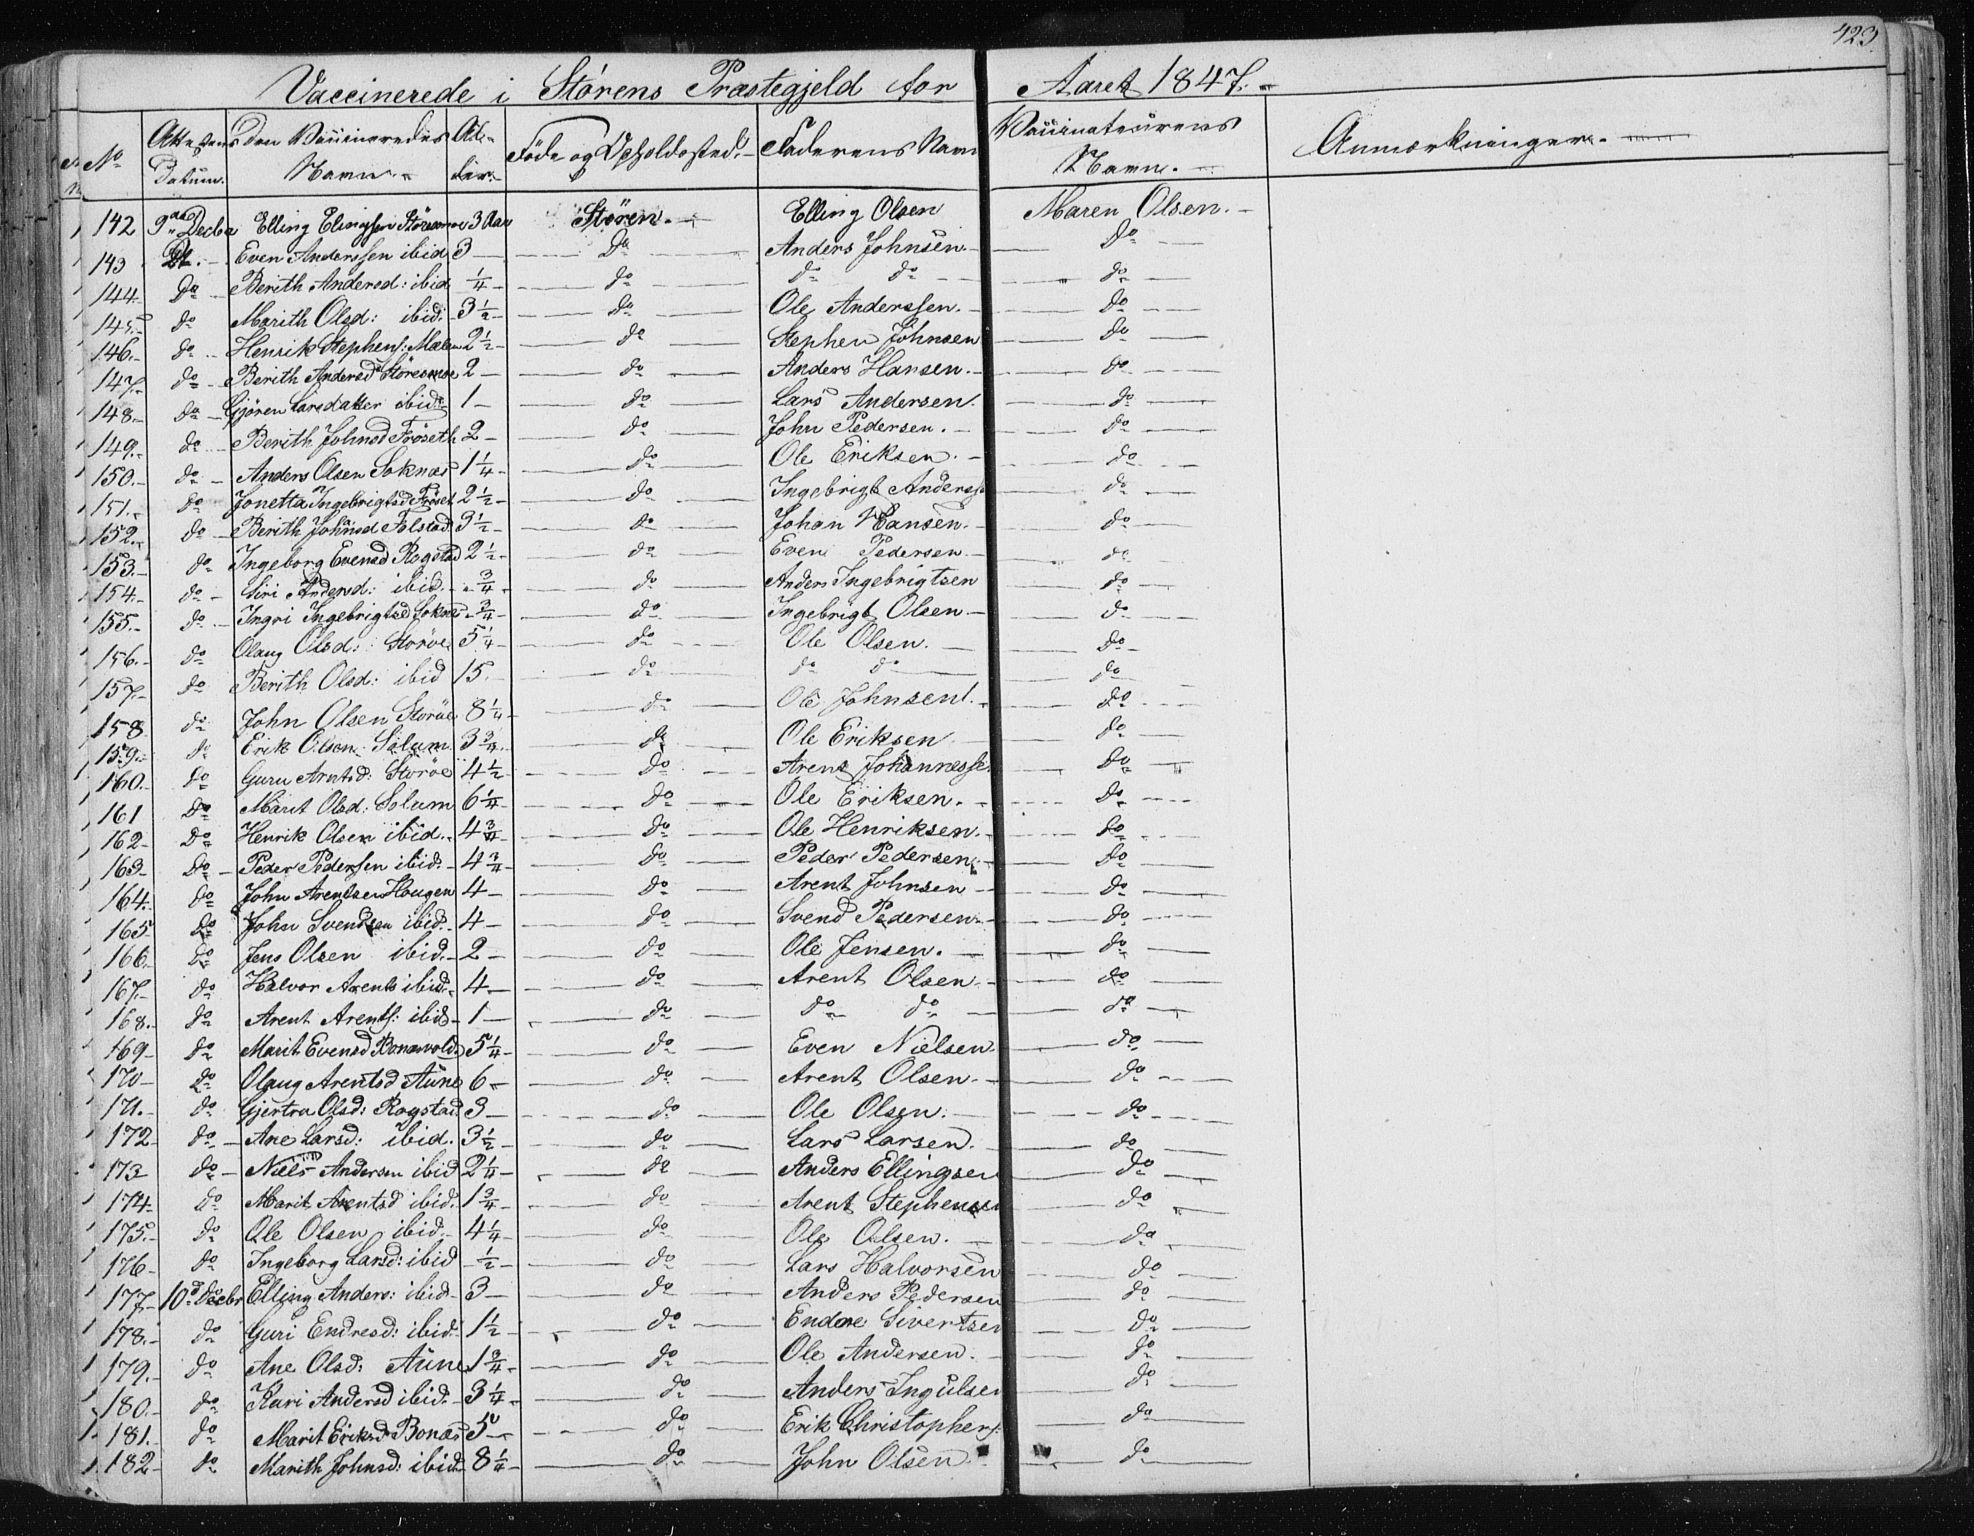 423.
Vaccinerede i Störens Præstegjeld for Aaret 1847.
No | Attestens Datum. | Den Vaccineredes Navn. | Al-der. | Föde og Opholdssted. | Faderens Navn | Vaccinateurens Navn. | Anmærkninger.
142 9de Decbr Elling Elingssen Störesmoe 3 Aar Stören. Elling Olsen Maren Olsen.
143 Do Even Anderssen ibid 3 Do Anders Johnsen Do
144 Do Berith Andersd: ibid 1/4 do do do do
145 do Marith Olsd: ibid: 3 1/2 do Ole Anderssen. do
146. do Henrik Stephens: Moen 2 1/2 do Stephen Johnsen do
147. do Berith Andersd Störesmoe 2 do Anders Hansen. do
148. do Gjören Larsdatter ibid 1 do Lars Andersen. do
149. do Berith Johnsd Fröseth 2 do John Pedersen. do
150. do Anders Olsen Soknæs 1 1/4 do Ole Eriksen. do
151. do Jonetta Ingebrigtsd Fröset 2 1/2 do Ingebrigt Anderss do
152. do Berith Johnsd Folstad 3 1/2 do Johan Hansen. do
153. do Ingeborg Evensd Rogstad 2 1/2 do Even Pedersen do
154. do Siri Andersd: ibid. 3/4 do Anders Ingebrigtsen do
155. do Ingri Ingebrigtsd Sokne 3/4 do Ingebrigt Olsen do
156. do Olaug Olsd: Storöe 5 1/4 do Ole Olsen. do
157. do Berith Olsd: ibid 15. do do do do
158 do John Olsen Storöe 8 1/4 do Ole Johnsen. do
159. do Erik Olsen Solum 3 3/4 do Ole Eriksen do
160. do Guru Arntsd: Storöe 4 1/2 do Arent Johannesse. do
161 Do Marit Olsd: Solum 6 1/4 do Ole Eriksen. do
162 Do Henrik Olsen ibid. 4 3/4 do Ole Henriksen. do
163 do Peder Pederssen ibid. 4 3/4 do Peder Pedersen. do
164. do John Arentsen Hougen 4 do Arent Johnsen do
165 do John Svendsen ibid. 4 do Svend Pedersen. do
166. do Jens Olsen ibid. 2 do Ole Jensen. do
167. do Halvor Arents ibid. 4. do Arent Olsen. do
168. do Arent Arents: ibid 1 do do do do
169 do Marit Evensd Bonæsvold 5 1/4 do Even Nielsen. do
170 do Olaug Arentsd Aune 6 do Arent Olsen. do
171. do Gjertru Olsd: Rogstad 3 do Ole Olsen. do
172 do Ane Larsd: ibid. 3 1/2 do Lars Larsen. do
173 do Niels Andersen ibid 2 1/4 do Anders Ellingsen do
174. do Marit Arentsd ibid. 1 3/4 do Arent Stephenssen do
175. do Ole Olsen ibid. 4 1/4 do Ole Olsen. do
176 do Ingeborg Larsd: ibid 1/2 do Lars Halvorsen do
177. 10de Decbr Elling Anders: ibid 3 do Anders Pedersen do
178. do Guri Endresd: ibid. 1 1/2 do Endre Sivertsen do
179. do Ane Olsd: Aune 1 3/4 do Ole Andersen. do
180. do Kari Andersd ibid. 3 1/4 do Anders Ingulsen do
181. do Marit Eriksd Bonæs 5 do Erik Christophers: do
182 do Marith Johnsd: ibid 8 1/4 do John Olsen do